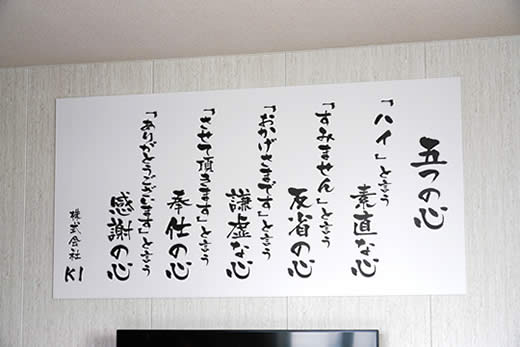 五つの心
「ハイ」と言う
素直な心
「すみません」と言う
反省の心
「おかげさまです」と言う
謙虚な心
「させて頂きます」と言う
奉仕の心
「ありがとうございます」と言う
感謝の心
株式会社 KI